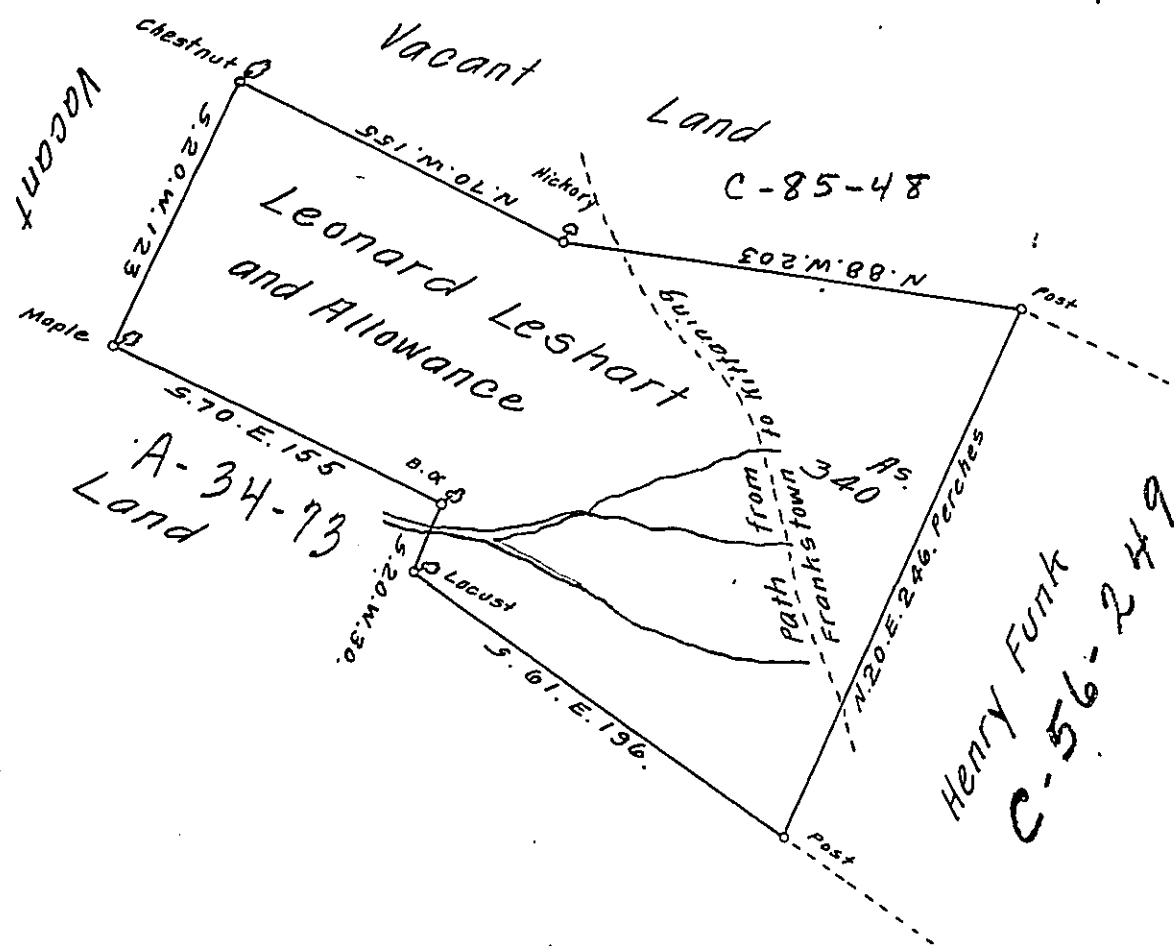 Chestnut
Vacant
Land
Vacant
S.20.W.123
N.70.W.155
Hickory
C-85-48
N.88.W.203
Post
Leonard Leshart
and Allowance
Maple
S.70.E.155
A-34-73
Land
B.O.
S.20.W.30.
Locust
S.61.E.196.
Path from
Frankstown to Kittaning
340 As.
N.20.E.246.Perches
Henry Funk
C-56-249
Post